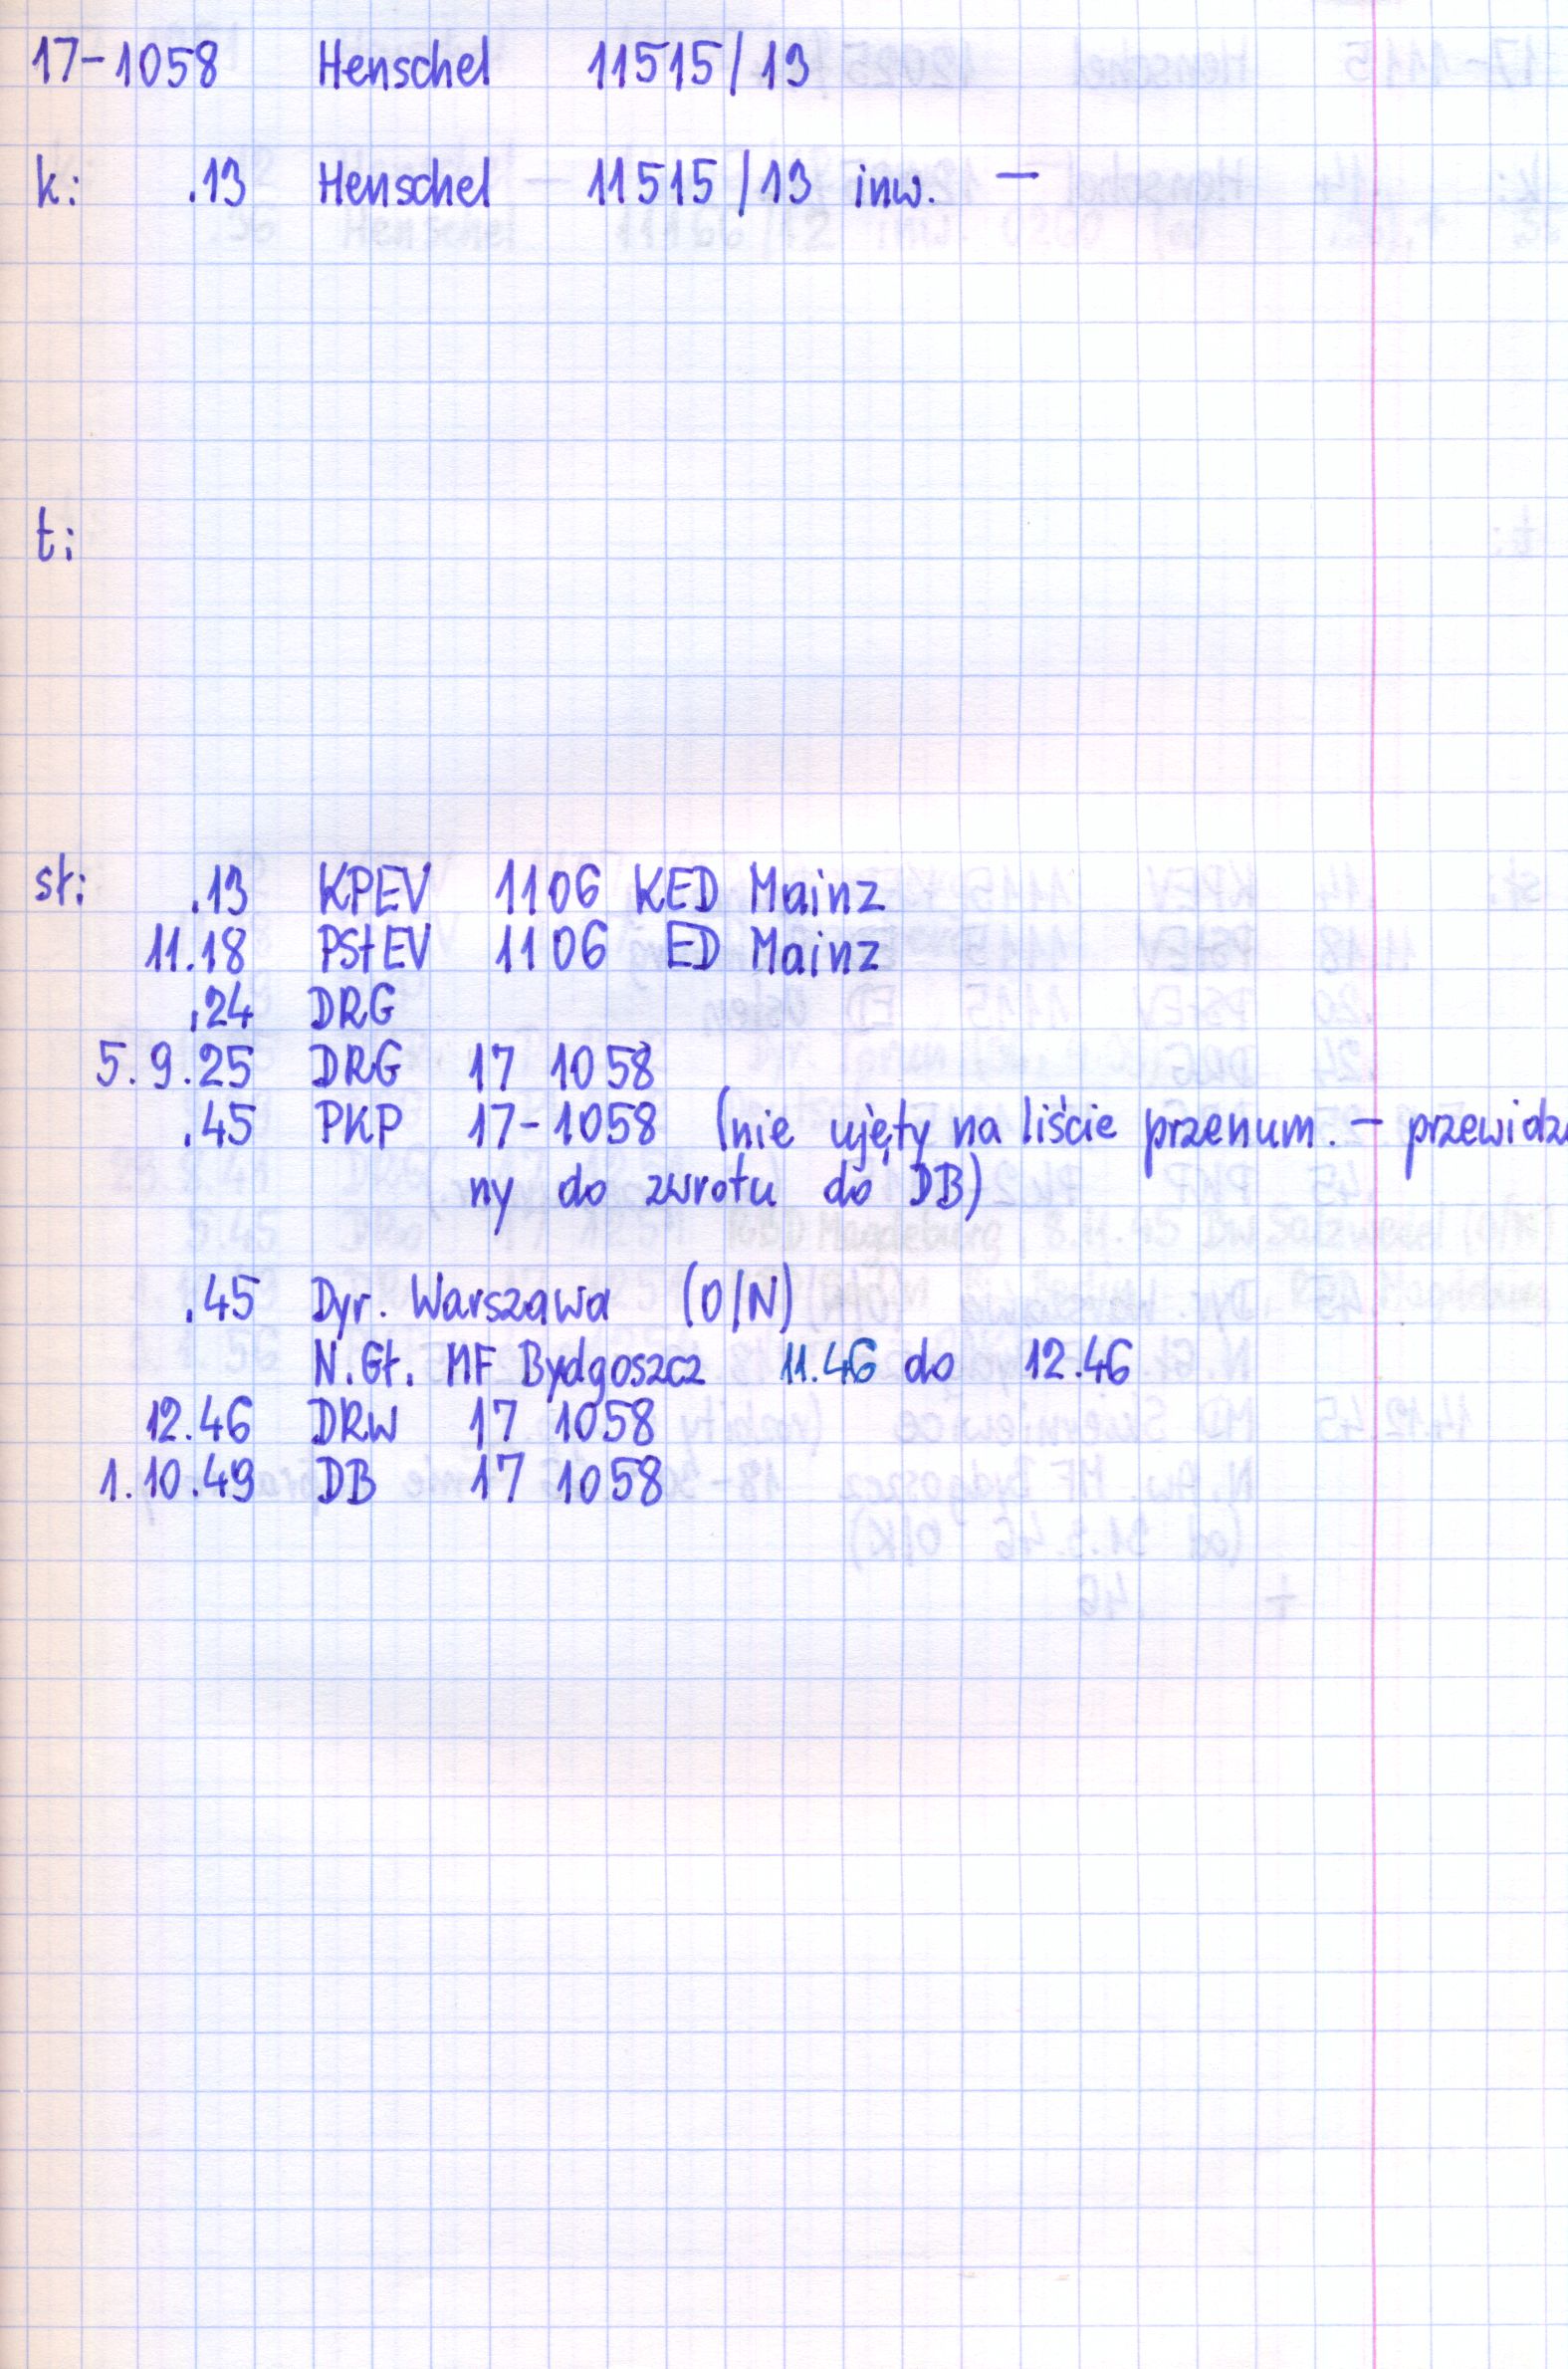 17-1058 Henschel 11515/13
k: .13 Henschel 11515/13 inw. —
t:
st: .13 KPEV 1106 KED Mainz
11.18 PStEV 1106 ED Mainz
.24 DRG
5.9.25 DRG 17 1058
.45 PKP 17-1058 (nie ujęty na liście przenum. — przewidz
ny do zwrotu do DB)
.45 Dyr. Warszawa (O/N)
N.Gł. MF Bydgoszcz 11.46 do 12.46
12.46 DRw 17 1058
1.10.49 DB 17 1058